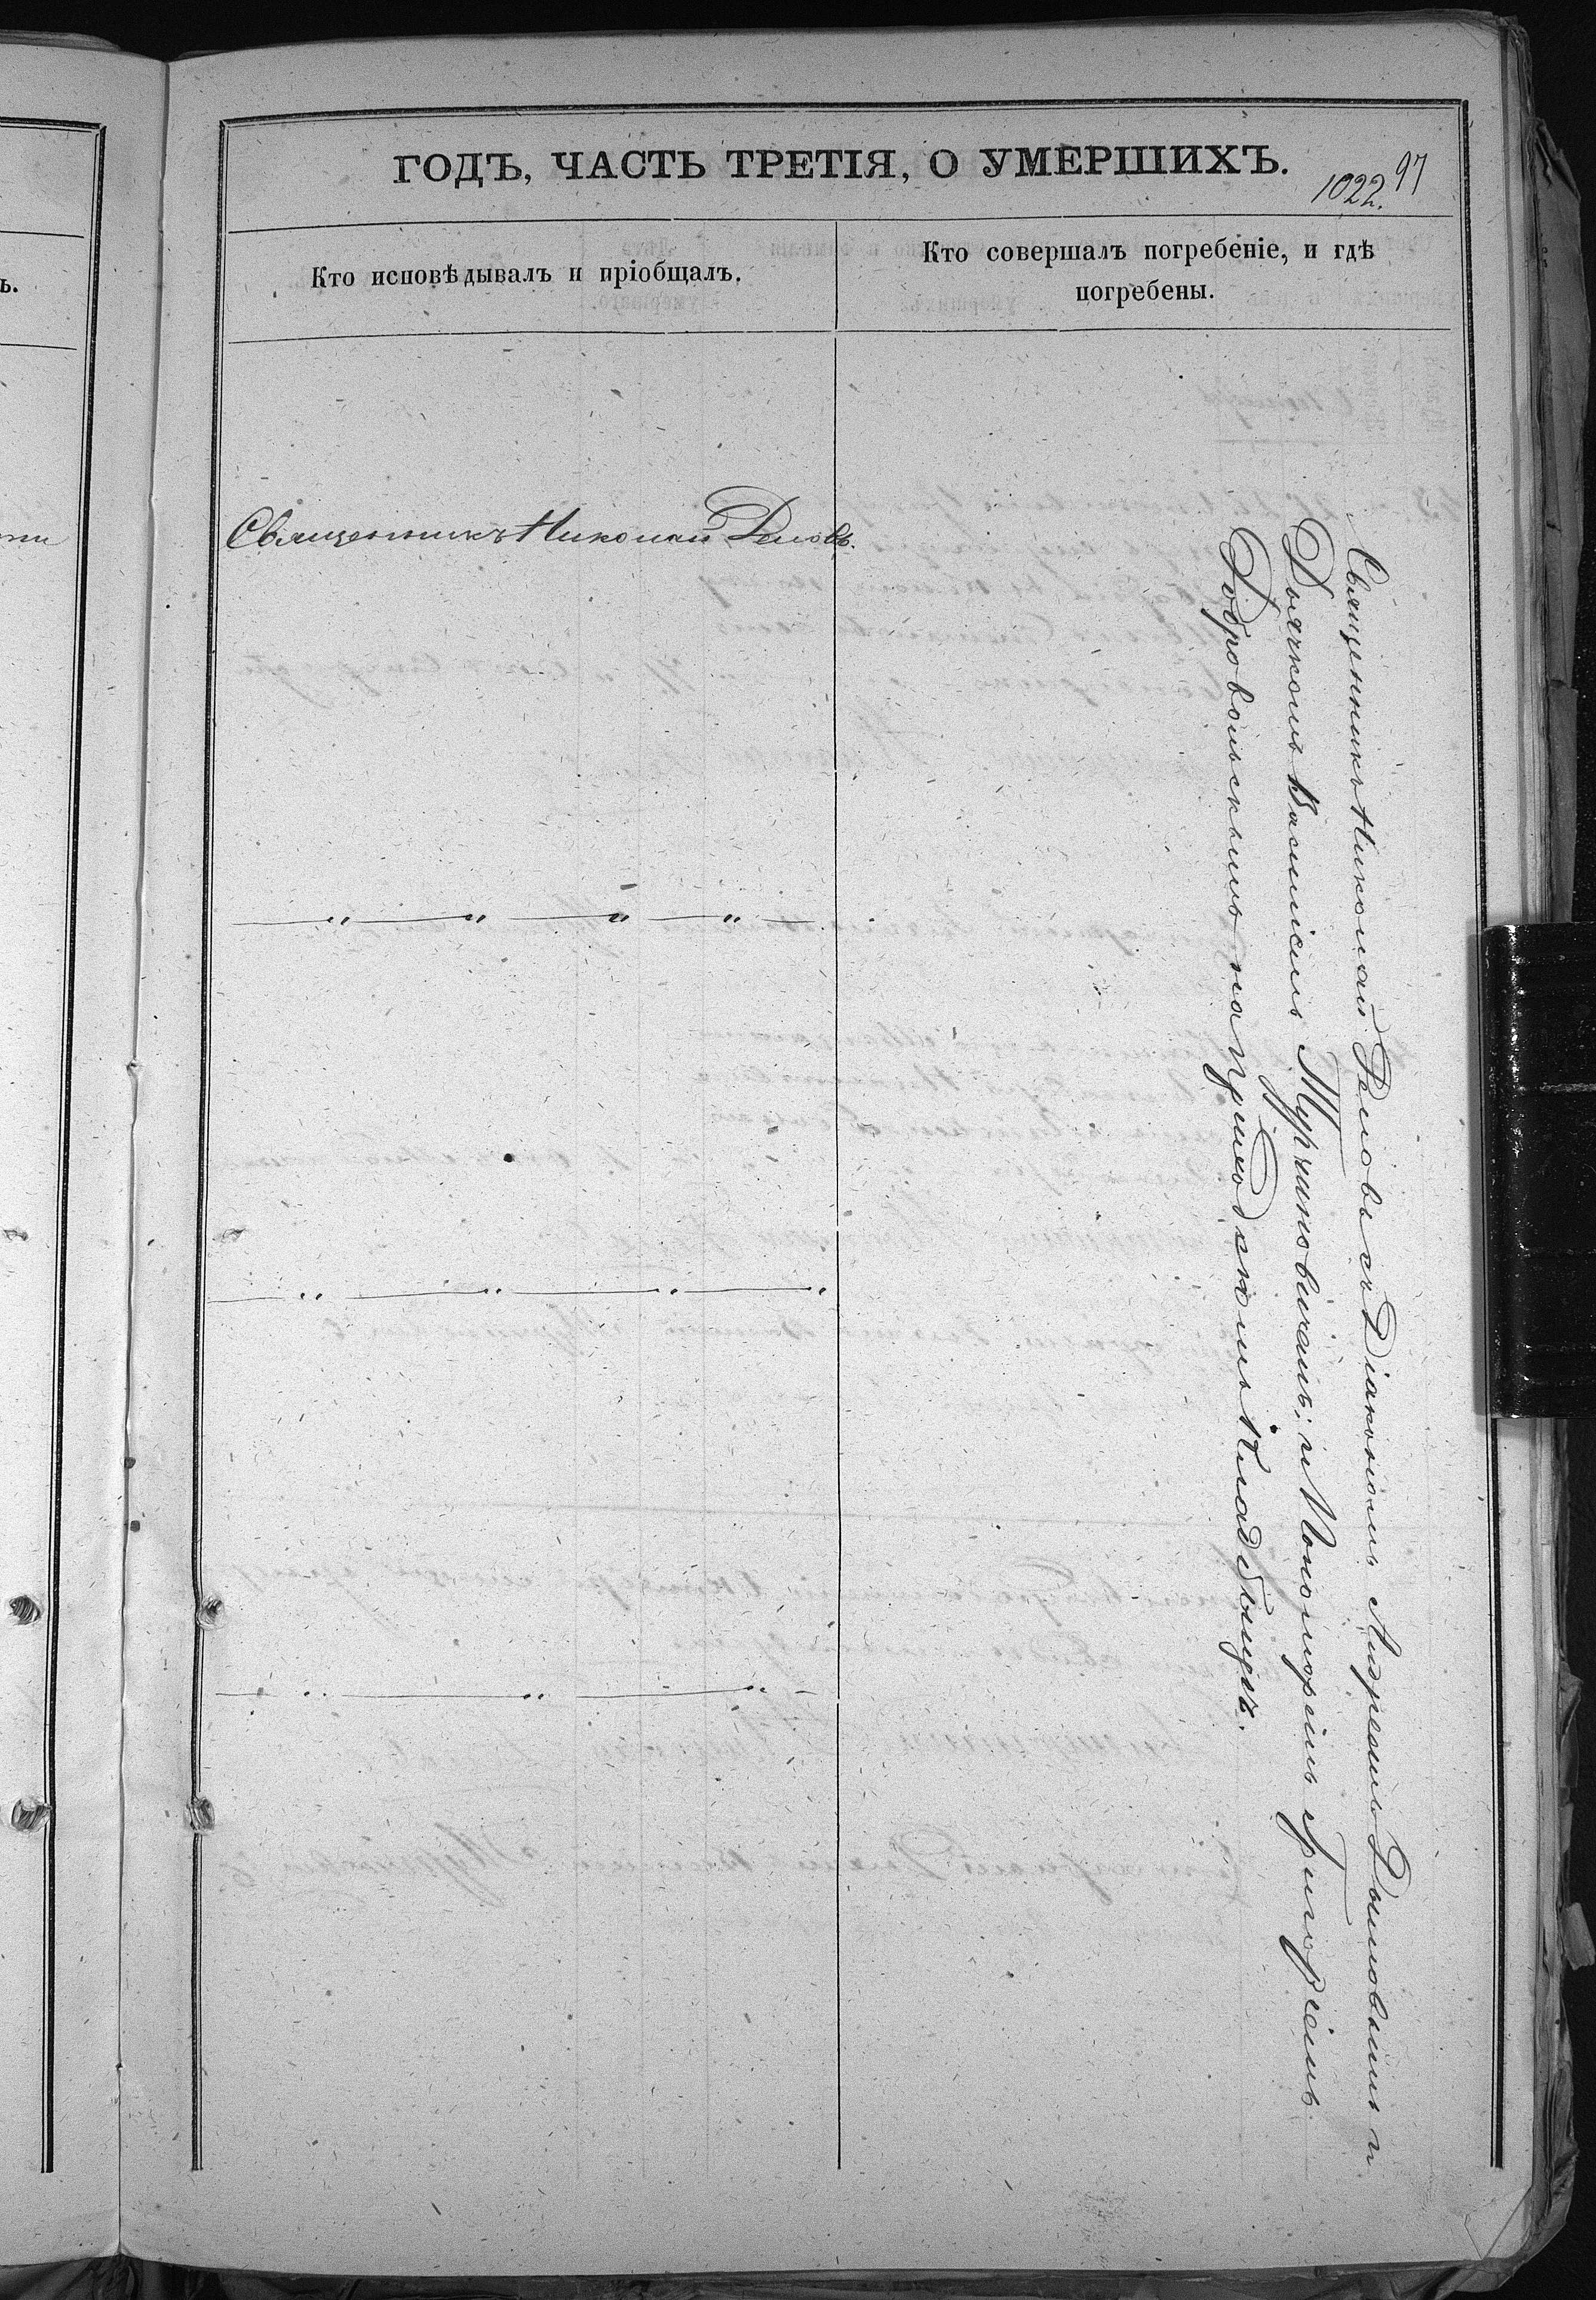 ГОДЪ, ЧАСТЬ ТРЕТІЯ, О УМЕРШИХЪ.
97
1022.
ъ.
Кто исповѣдывалъ и пріобщалъ.
Кто совершалъ погребеніе, и гдѣ
погребены.
Священникъ Николай Реловъ.
Священникъ Николай Реловъ съ Діакономъ Андреемъ Дыновымъ и
Дьячкомъ Василіемъ Мурчиновичамъ; и Пономоремъ Григоріемъ
Добровольскимъ на приходскомъ Кладбищѣ.